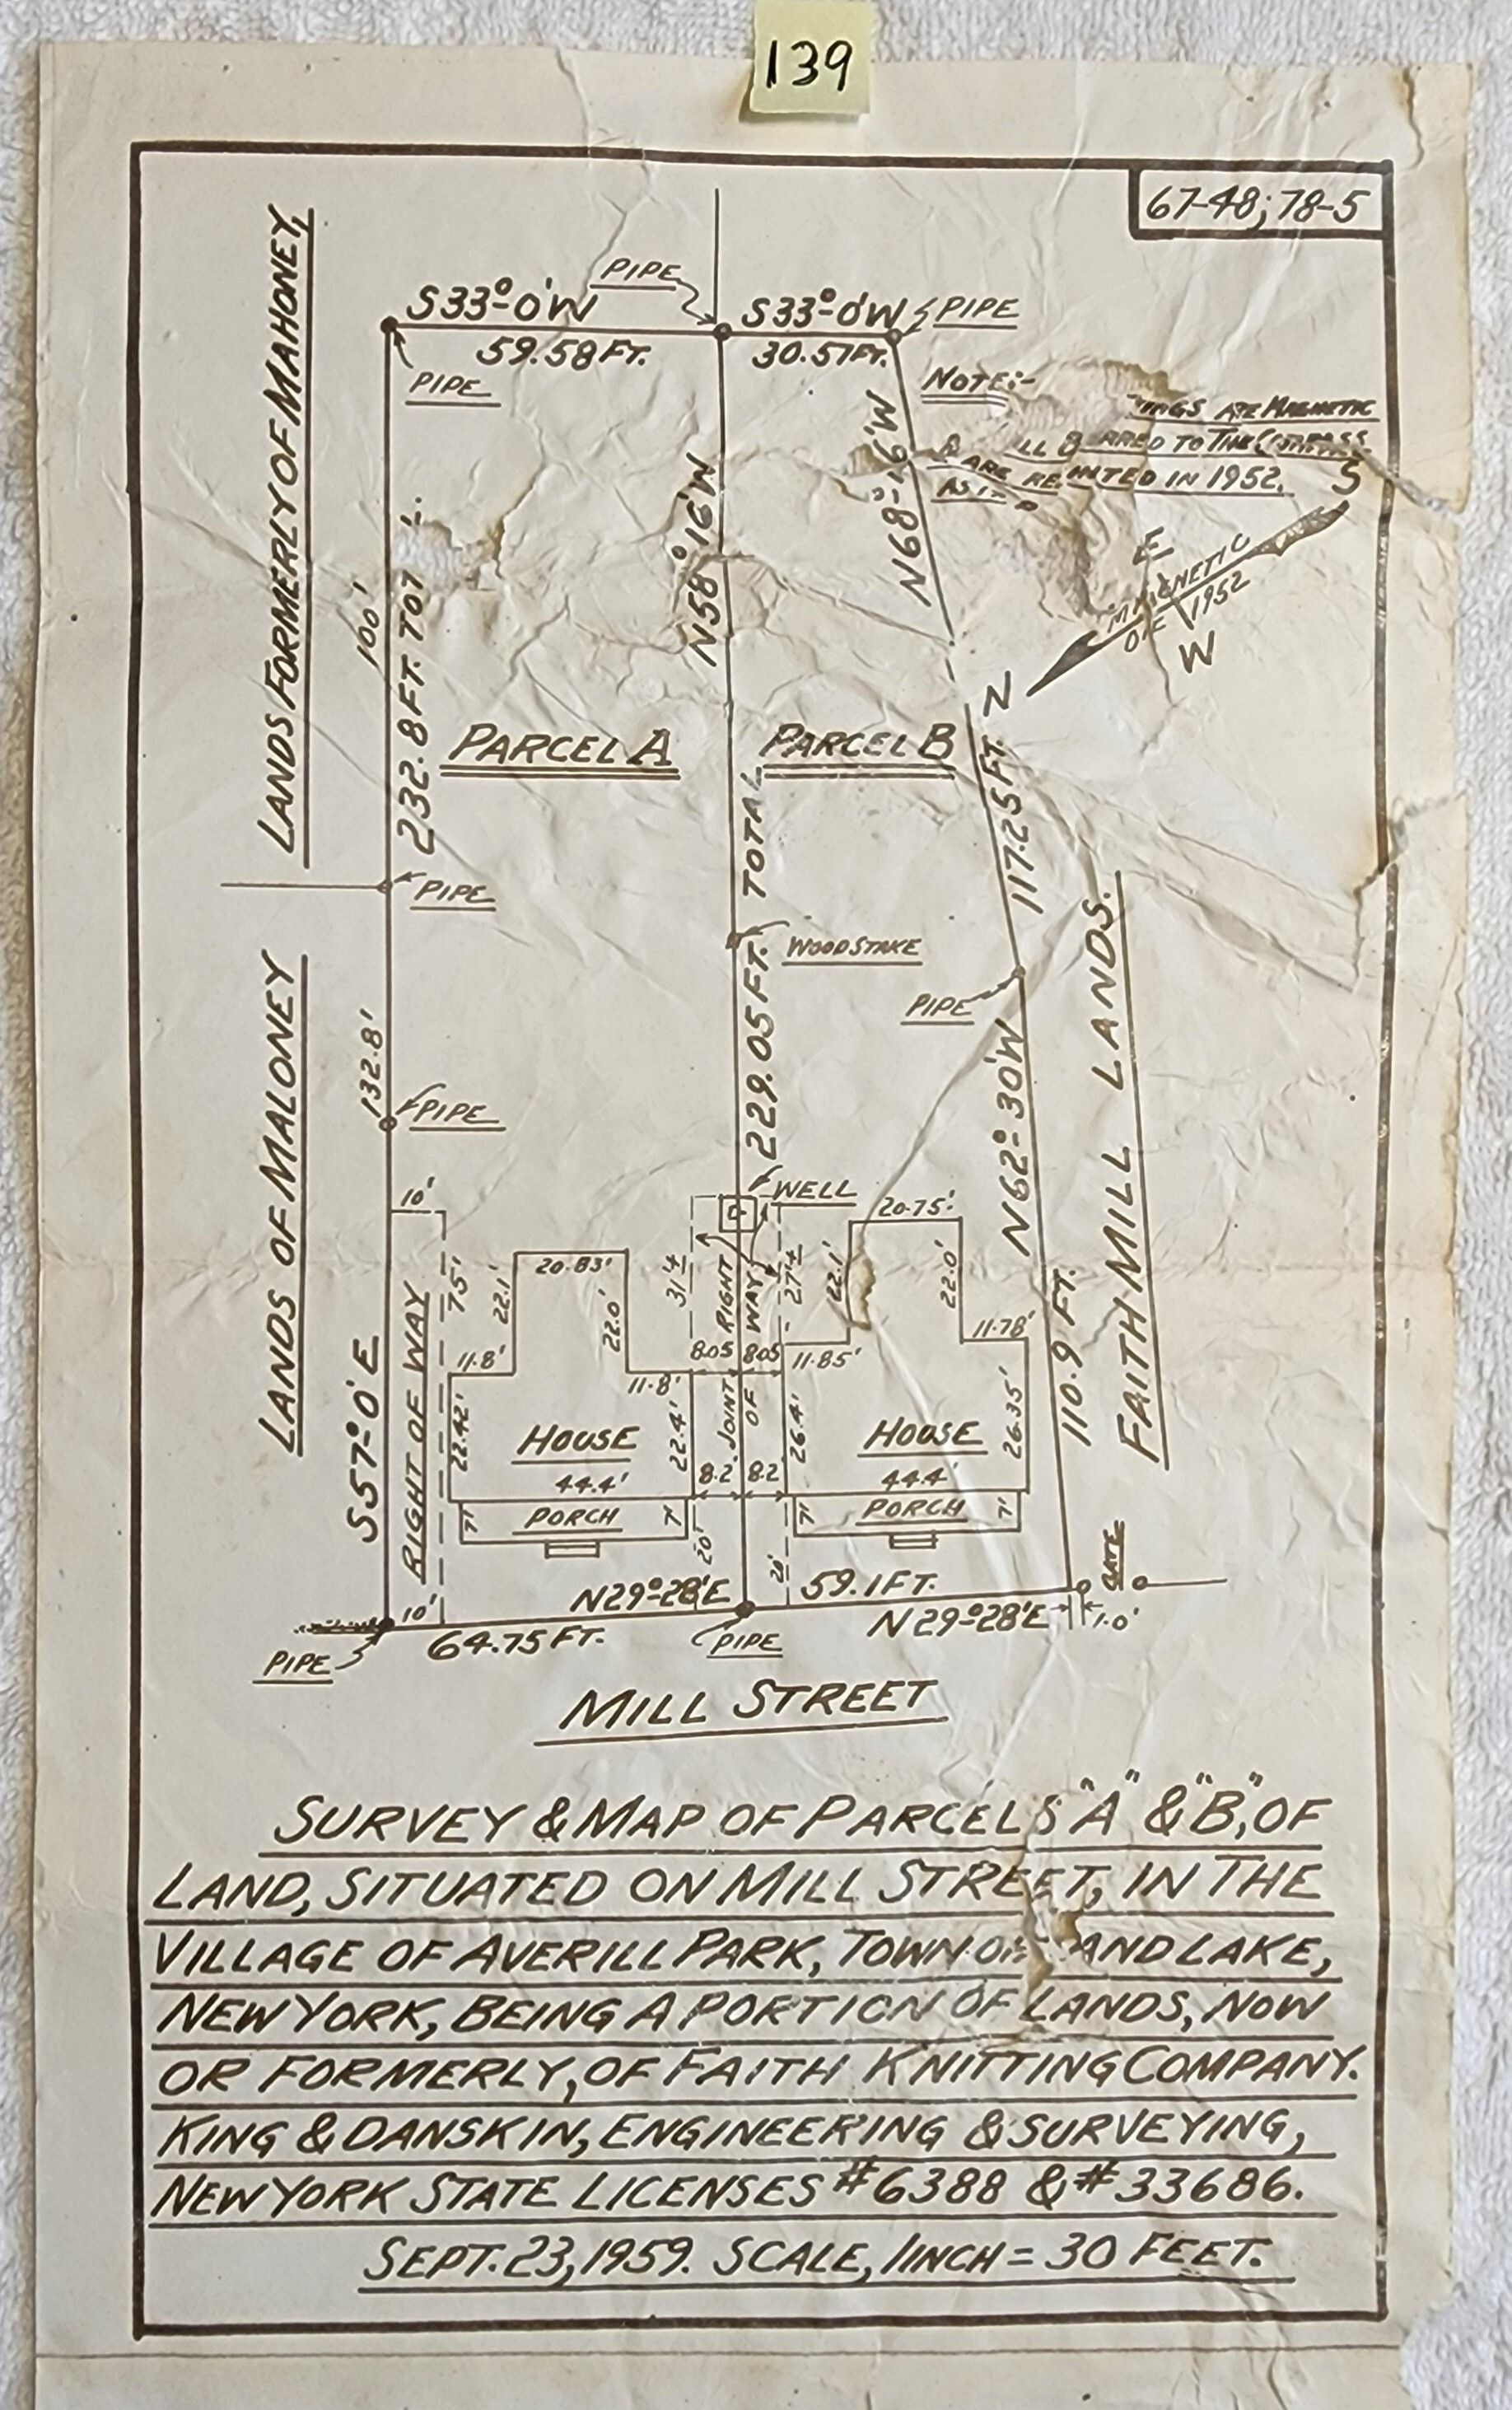 139
67-48; 78-5
LANDS FORMERLY OF MAHONEY,
LANDS OF MALONEY
S33°-0'W
59.58 FT.
PIPE
PIPE
S33°-0'W
30.57 FT.
PIPE
NOTE:-
ARE MAGNETIC
TO THE COMPASS
ARE
IN 1952.
S
E
MAGNETIC
1952
W
N
100'
232.8 FT.
N58°-16'W
N68°-16'W
PARCEL A
PARCEL B
TOTAL
117.25 FT.
PIPE
WOOD STAKE
229.05 FT.
PIPE
132.8'
PIPE
N62°-30'W
FAITH MILL LANDS.
10'
WELL
20.75'
20.83'
75'
22.1'
22.0'
31.4
RIGHT
WAY
27.4
22.1'
22.0'
11.78'
11.8'
11.8'
8.05
8.05
11.85'
110.9 FT.
S57°-0'E
RIGHT OF WAY
22.42'
HOUSE
22.4'
JOINT
OF
26.4'
HOUSE
26.35'
44.4'
8.2
8.2
44.4'
7'
PORCH
7'
7'
PORCH
7'
20'
20'
GATE
N29°-28'E
59.1 FT.
10'
64.75 FT.
PIPE
N29°-28'E
1.0'
PIPE
MILL STREET
SURVEY & MAP OF PARCELS "A" & "B", OF
LAND, SITUATED ON MILL STREET, IN THE
VILLAGE OF AVERILL PARK, TOWN OF AND LAKE,
NEW YORK, BEING A PORTION OF LANDS, NOW
OR FORMERLY, OF FAITH KNITTING COMPANY.
KING & DANSKIN, ENGINEERING & SURVEYING,
NEW YORK STATE LICENSES #6388 & #33686.
SEPT. 23, 1959. SCALE, 1 INCH = 30 FEET.